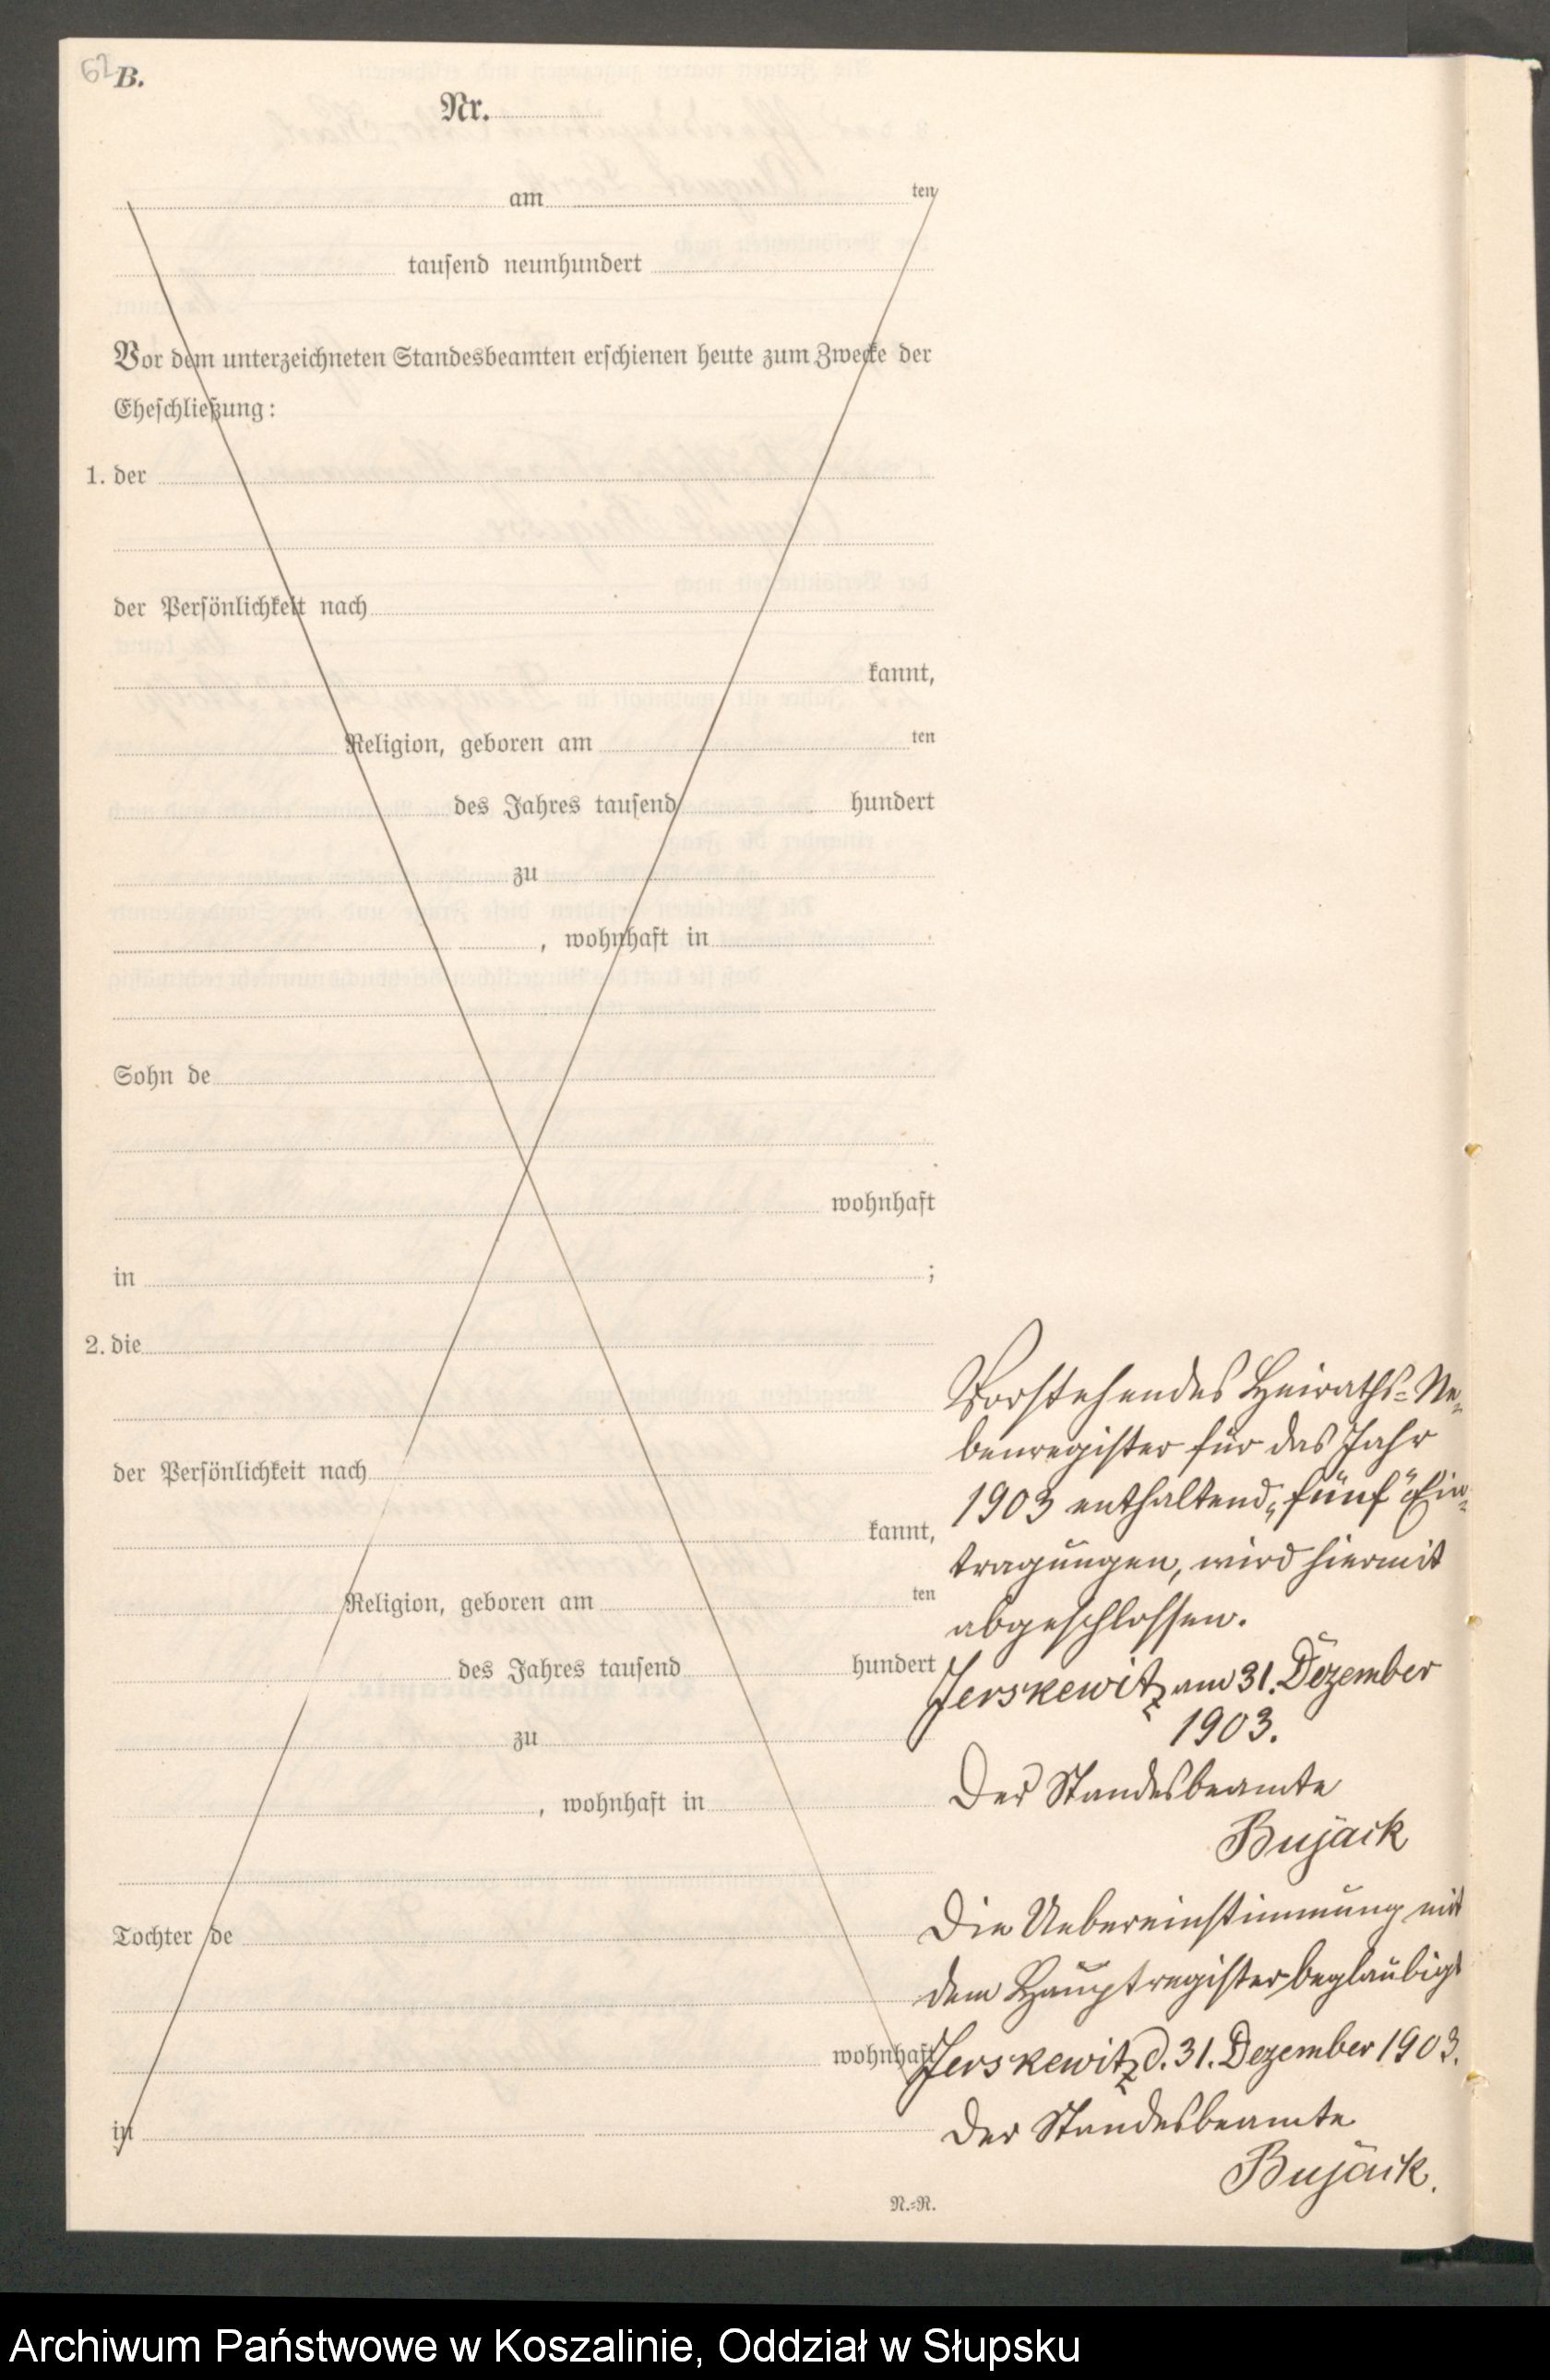 62
B.
Nr.
am ten
tausend neunhundert
Vor dem unterzeichneten Standesbeamten erschienen heute zum Zwecke der
Eheschließung:
1. der
der Persönlichkeit nach
kannt,
Religion, geboren am ten
des Jahres tausend hundert
zu
, wohnhaft in
Sohn de
wohnhaft
in ;
2. die
der Persönlichkeit nach
kannt,
Religion, geboren am ten
des Jahres tausend hundert
zu
, wohnhaft in
Tochter de
wohnhaft
in
N.=R.
Vorstehendes Heiraths=Ne=
benregister für das Jahr
1903 enthaltend „fünf“ Ein=
tragungen, wird hiermit
abgeschlossen.
Jerskewitz am 31. Dezember
1903.
Der Standesbeamte
Bujack
Die Uebereinstimmung mit
dem Hauptregister beglaubigt
Jerskewitz d. 31. Dezember 1903.
Der Standesbeamte
Bujack.
Archiwum Państwowe w Koszalinie, Oddział w Słupsku